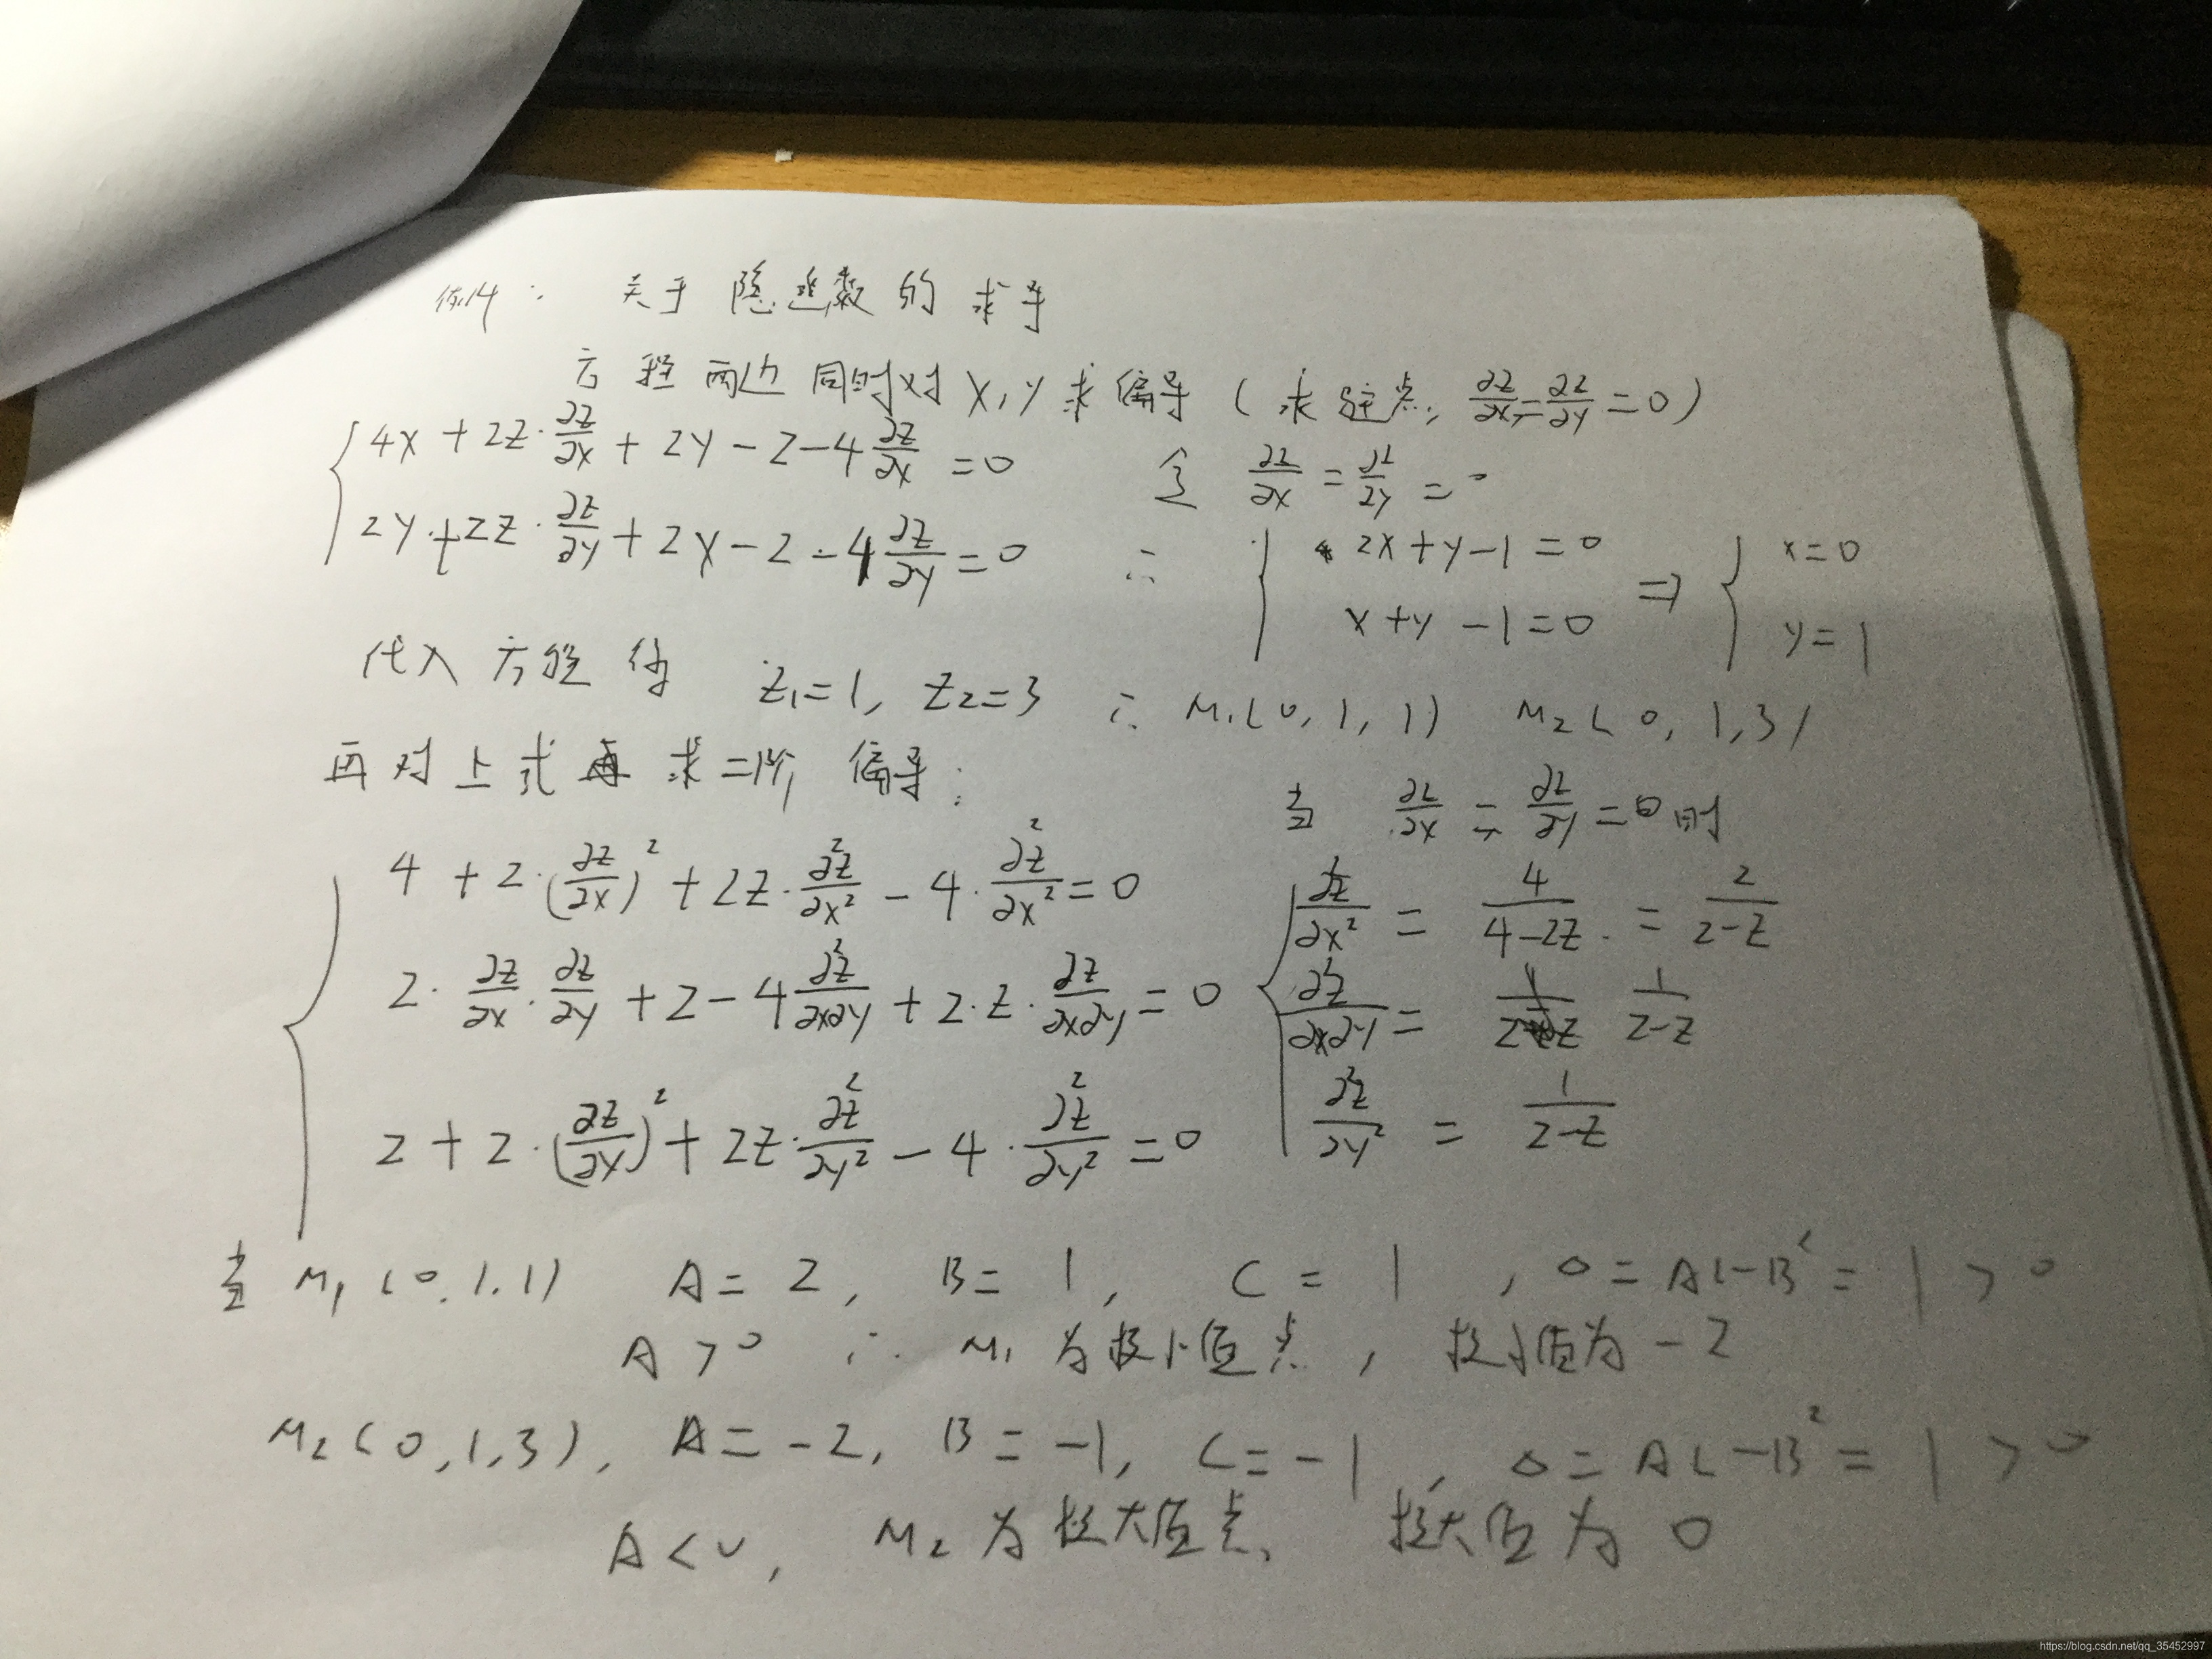 例14： 关于隐函数的求导
方程两边同时对 x, y 求偏导 ( 求驻点, ∂z/∂x = ∂z/∂y = 0 )
4x + 2z·∂z/∂x + 2y - 2 - 4 ∂z/∂x = 0 令 ∂z/∂x = ∂z/∂y = 0
2y + 2z·∂z/∂y + 2x - 2 - 4 ∂z/∂y = 0 ∴ { 2x + y - 1 = 0 x + y - 1 = 0 ⇒ { x = 0 y = 1
代入方程得 z₁ = 1, z₂ = 3 ∴ M₁(0, 1, 1) M₂(0, 1, 3)
再对上式 求二阶偏导： 当 ∂z/∂x = ∂z/∂y = 0 时
4 + 2·(∂z/∂x)² + 2z·∂²z/∂x² - 4·∂²z/∂x² = 0 ∂²z/∂x² = 4/(4-2z) = 2/(2-z)
2·∂z/∂x·∂z/∂y + 2 - 4 ∂²z/∂x∂y + 2·z·∂z/∂x∂y = 0 ∂²z/∂x∂y = 1/(2-z)
2 + 2·(∂z/∂y)² + 2z·∂²z/∂y² - 4·∂²z/∂y² = 0 ∂²z/∂y² = 1/(2-z)
当 M₁(0, 1, 1) A = 2, B = 1, C = 1, Δ = AC - B² = 1 > 0
A > 0 ∴ M₁ 为极小值点, 极小值为 -2
M₂(0, 1, 3), A = -2, B = -1, C = -1, Δ = AC - B² = 1 > 0
A < 0, M₂ 为极大值点, 极大值为 0
https://blog.csdn.net/qq_35452997